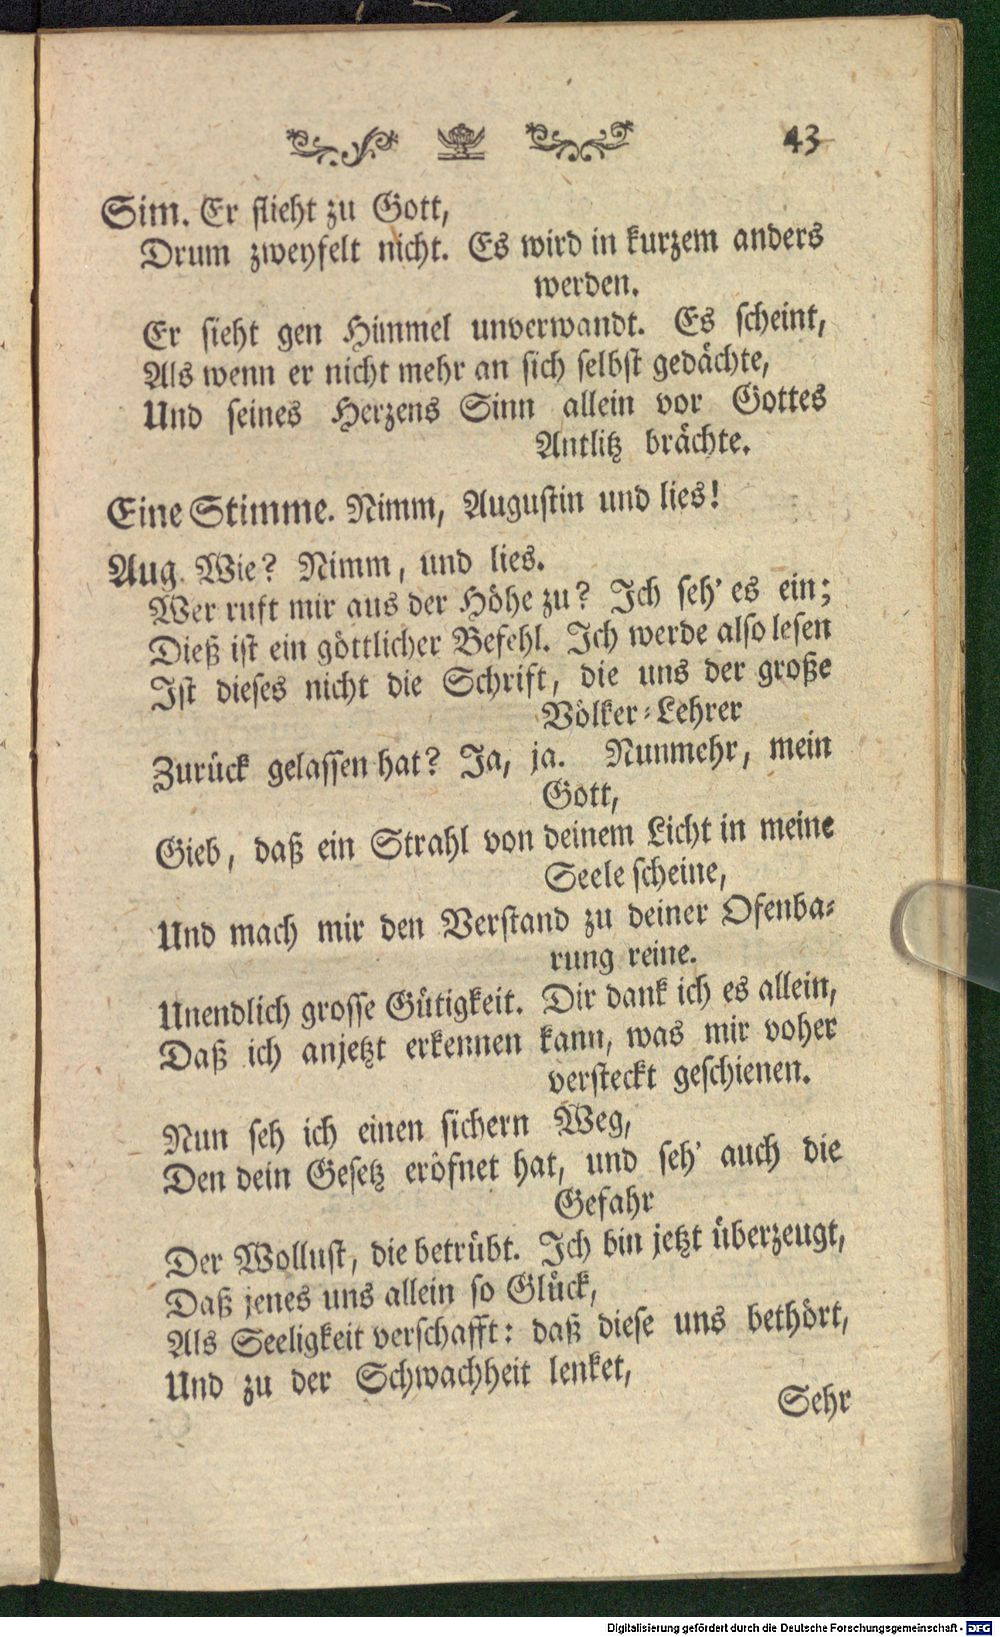 43
Sim. Er flieht zu Gott,
Drum zweyfelt nicht. Es wird in kurzem anders
werden.
Er sieht gen Himmel unverwandt. Es scheint,
Als wenn er nicht mehr an sich selbst gedächte,
Und seines Herzens Sinn allein vor Gottes
Antlitz brächte.
Eine Stimme. Nimm, Augustin und lies!
Aug. Wie? Nimm, und lies.
Wer ruft mir aus der Höhe zu? Ich seh' es ein;
Dieß ist ein göttlicher Befehl. Ich werde also lesen
Ist dieses nicht die Schrift, die uns der große
Völker-Lehrer
Zurück gelassen hat? Ja, ja. Nunmehr, mein
Gott,
Gieb, daß ein Strahl von deinem Licht in meine
Seele scheine,
Und mach mir den Verstand zu deiner Ofenba-
rung reine.
Unendlich grosse Gütigkeit. Dir dank ich es allein,
Daß ich anjetzt erkennen kann, was mir voher
versteckt geschienen.
Nun seh ich einen sichern Weg,
Den dein Gesetz eröfnet hat, und seh' auch die
Gefahr
Der Wollust, die betrübt. Ich bin jetzt überzeugt,
Daß jenes uns allein so Glück,
Als Seeligkeit verschafft: daß diese uns bethört,
Und zu der Schwachheit lenket,
Sehr
Digitalisierung gefördert durch die Deutsche Forschungsgemeinschaft - DFG